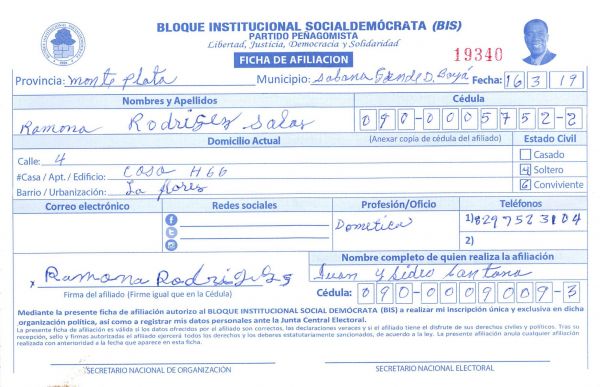 BLOQUE INSTITUCIONAL SOCIALDEMÓCRATA (BIS)
PARTIDO PEÑAGOMISTA
Libertad, Justicia, Democracia y Solidaridad
FICHA DE AFILIACION
19340
Provincia: Monte Plata Municipio: Sabana Grande D. Boyá Fecha: 16 3 19
Nombres y Apellidos Cédula
Ramona Rodriges Salas 090-0005752-2
Domicilio Actual (Anexar copia de cédula del afiliado) Estado Civil
Calle: 4 Casado
#Casa / Apt. / Edificio: Casa H66 Soltero
Barrio / Urbanización: La flores Conviviente
Correo electrónico Redes sociales Profesión/Oficio Teléfonos
Dometica 1) 8297523104
2)
Nombre completo de quien realiza la afiliación
Ramona Rodriges Juan y Sidro Santana
Firma del afiliado (Firme igual que en la Cédula) Cédula: 090-0009009-3
Mediante la presente ficha de afiliación autorizo al BLOQUE INSTITUCIONAL SOCIAL DEMÓCRATA (BIS) a realizar mi inscripción única y exclusiva en dicha
organización política, así como a registrar mis datos personales ante la Junta Central Electoral.
La presente ficha de afiliación es válida si los datos ofrecidos por el afiliado son correctos, las declaraciones veraces y si el afiliado tiene el disfrute de sus derechos civiles y políticos. Tras su
recepción, sello y firmas autorizadas el afiliado ejercerá todos los derechos y los deberes estatutariamente sancionados, de acuerdo a la ley. La presente afiliación anula cualquier afiliación
realizada con anterioridad a la fecha que aparece en esta ficha.
SECRETARIO NACIONAL DE ORGANIZACIÓN SECRETARIO NACIONAL ELECTORAL